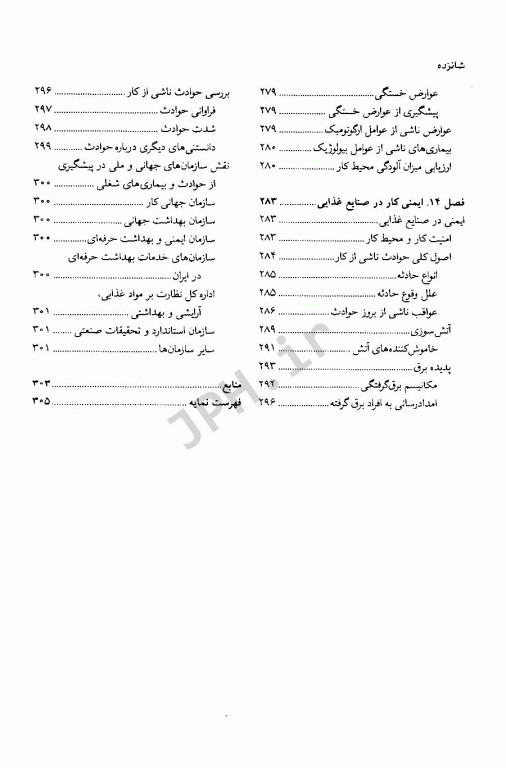 شانزده
عوارض خستگی ........................ ۲۷۹
پیشگیری از عوارض خستگی ........................ ۲۷۹
عوارض ناشی از عوامل ارگونومیک ........................ ۲۷۹
بیماری‌های ناشی از عوامل بیولوژیک ........................ ۲۸۰
ارزیابی میزان آلودگی محیط کار ........................ ۲۸۰
فصل ۱۴. ایمنی کار در صنایع غذایی ........................ ۲۸۳
ایمنی در صنایع غذایی ........................ ۲۸۳
امنیت کار و محیط کار ........................ ۲۸۳
اصول کلی حوادث ناشی از کار ........................ ۲۸۴
انواع حادثه ........................ ۲۸۵
علل وقوع حادثه ........................ ۲۸۵
عواقب ناشی از بروز حوادث ........................ ۲۸۶
آتش‌سوزی ........................ ۲۸۹
خاموش‌کننده‌های آتش ........................ ۲۹۱
پدیده برق ........................ ۲۹۳
مکانیسم برق‌گرفتگی ........................ ۲۹۴
امدادرسانی به افراد برق گرفته ........................ ۲۹۶
بررسی حوادث ناشی از کار ........................ ۲۹۶
فراوانی حوادث ........................ ۲۹۷
شدت حوادث ........................ ۲۹۸
دانستنی‌های دیگری درباره حوادث ........................ ۲۹۹
نقش سازمان‌های جهانی و ملی در پیشگیری
از حوادث و بیماری‌های شغلی ........................ ۳۰۰
سازمان جهانی کار ........................ ۳۰۰
سازمان بهداشت جهانی ........................ ۳۰۰
سازمان ایمنی و بهداشت حرفه‌ای ........................ ۳۰۰
سازمان‌های خدمات بهداشت حرفه‌ای
در ایران ........................ ۳۰۰
اداره کل نظارت بر مواد غذایی،
آرایشی و بهداشتی ........................ ۳۰۱
سازمان استاندارد و تحقیقات صنعتی ........ ۳۰۱
سایر سازمان‌ها ........................ ۳۰۱
منابع ........................ ۳۰۳
فهرست نمایه ........................ ۳۰۵
JPH.ir